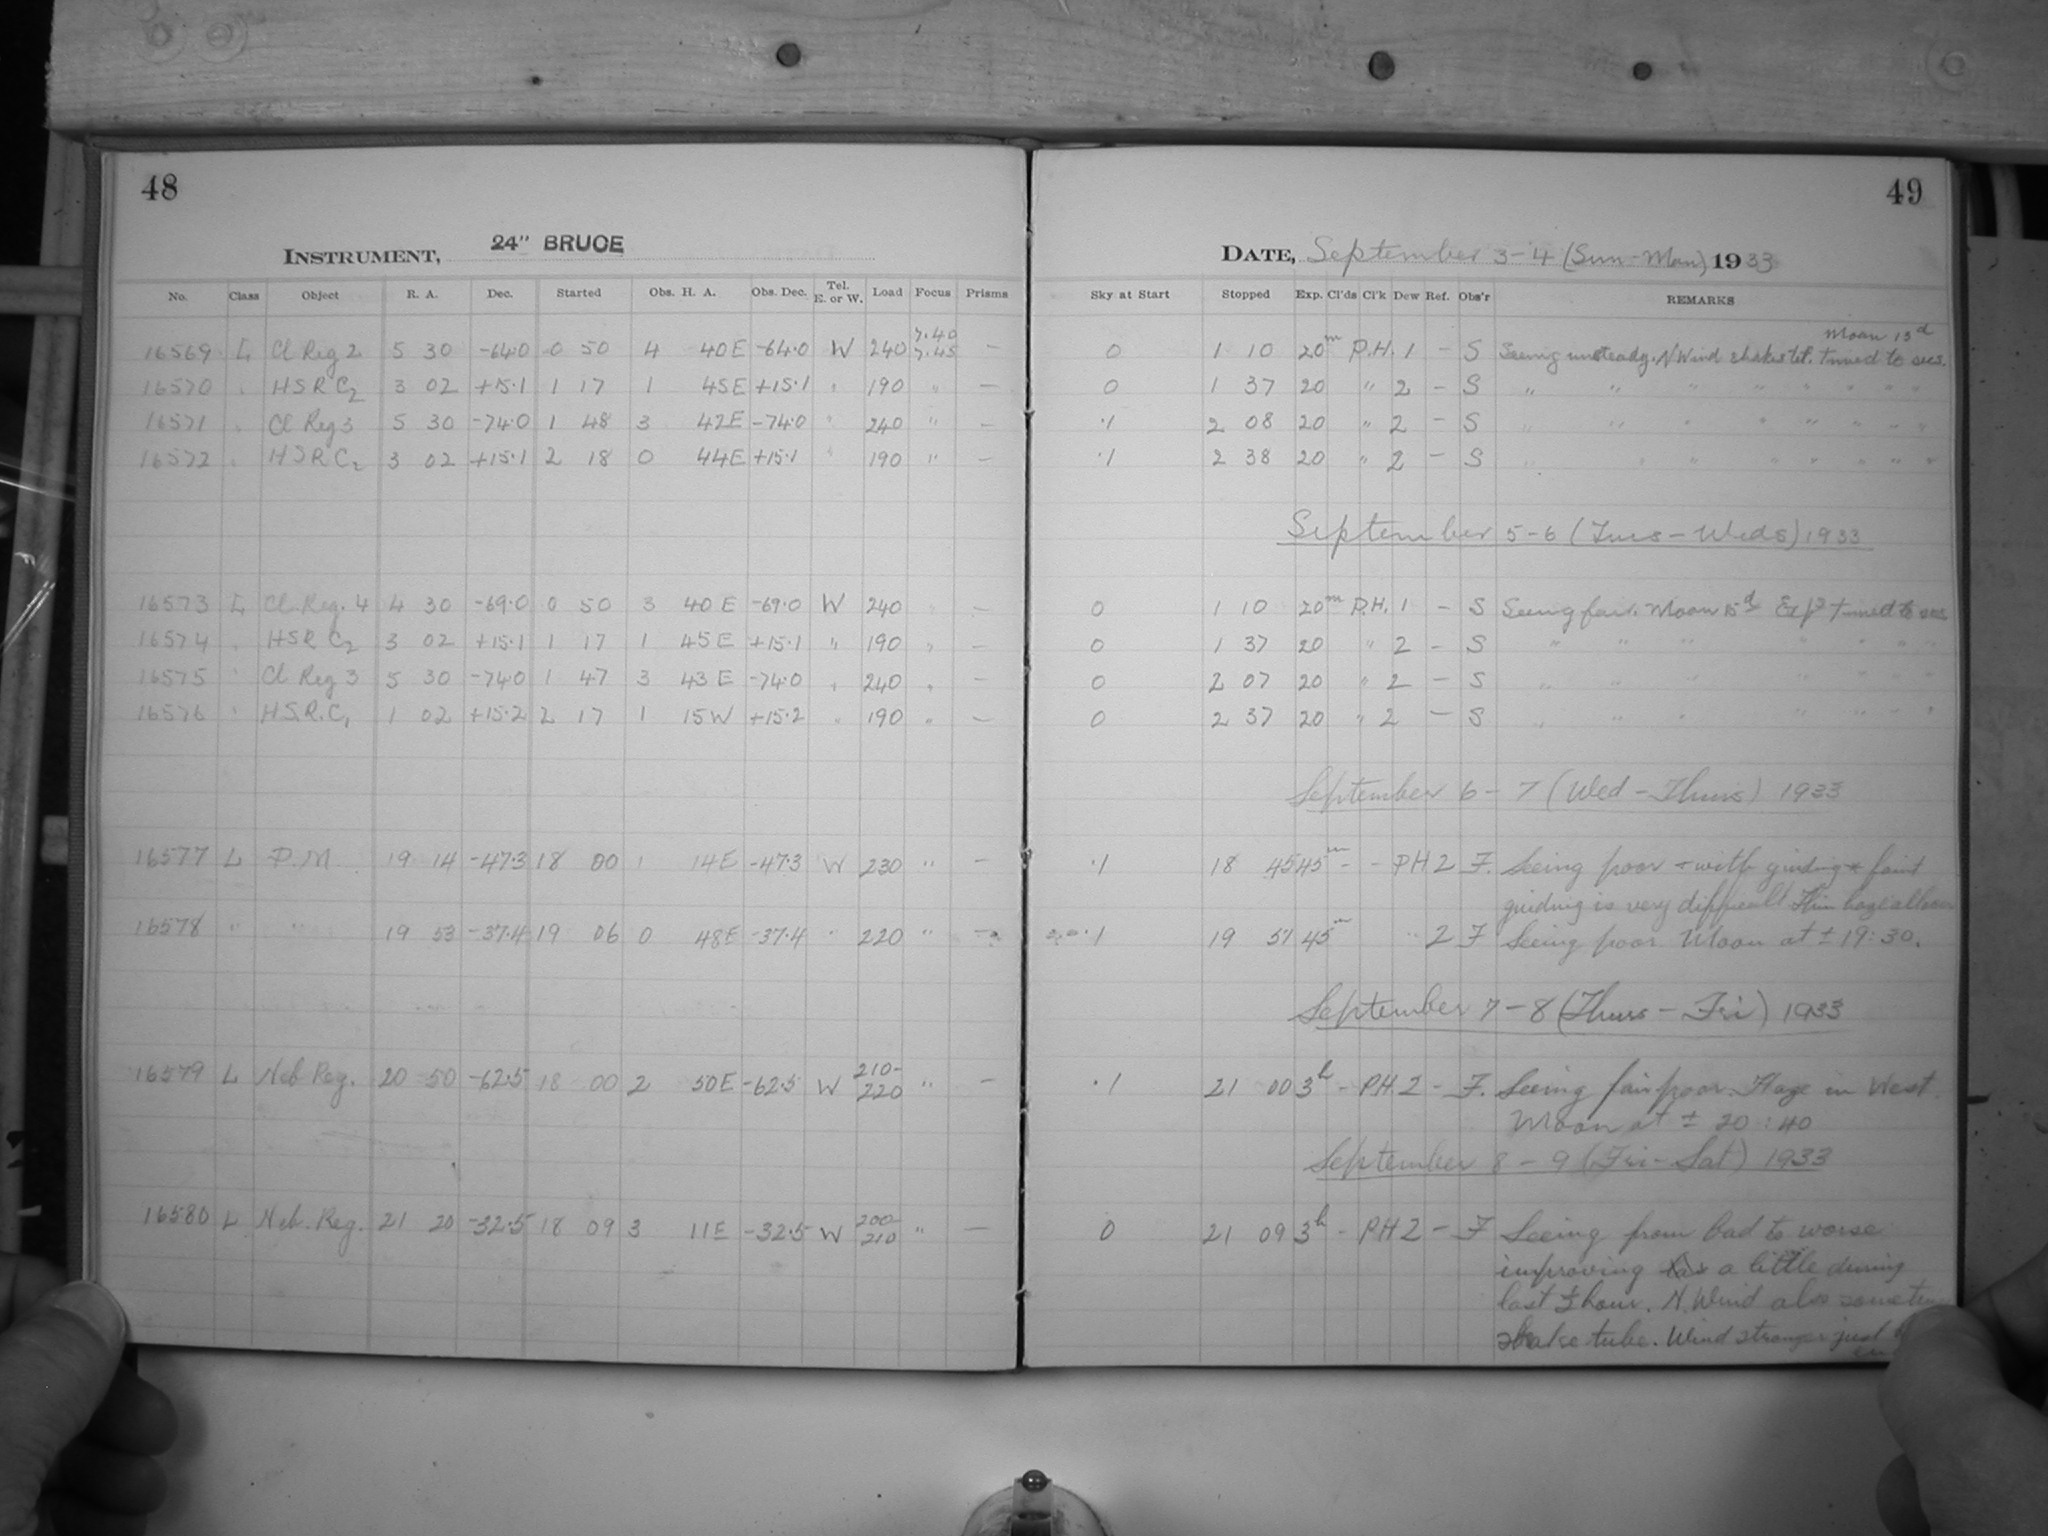 48
INSTRUMENT, 24" BRUCE
No. Class Object R. A. Dec. Started Obs. H. A. Obs. Dec. Tel. E. or W. Load Focus Prisms
7.40
16569 L Cl Reg 2 5 30 -64.0 0 50 4 40E -64.0 W 240 7.45 —
16570 " HSR C2 3 02 +15.1 1 17 1 45E +15.1 " 190 " —
16571 " Cl Reg 3 5 30 -74.0 1 48 3 42E -74.0 " 240 " —
16572 " HSR C2 3 02 +15.1 2 18 0 44E +15.1 " 190 " —
16573 L Cl. Reg. 4 4 30 -69.0 0 50 3 40 E -69.0 W 240 " —
16574 " HSR C2 3 02 +15.1 1 17 1 45E +15.1 " 190 " —
16575 " Cl Reg 3 5 30 -74.0 1 47 3 43 E -74.0 " 240 " —
16576 " H.S.R.C1 1 02 +15.2 2 17 1 15W +15.2 " 190 " —
16577 L P.M. 19 14 -47.3 18 00 1 14E -47.3 W 230 " —
16578 " " 19 53 -37.4 19 06 0 48E -37.4 " 220 " —
16579 L Neb Reg. 20 50 -62.5 18 00 2 50E -62.5 W 210-220 " —
16580 L Neb. Reg. 21 20 -32.5 18 09 3 11E -32.5 W 200-210 " —
49
DATE, September 3-4 (Sun-Mon) 1933
Sky at Start Stopped Exp. Cl'ds Cl'k Dew Ref. Obs'r REMARKS
Moon 13d
0 1 10 20m P.H. 1 - S Seeing unsteady. N Wind shakes tel. timed to secs.
0 1 37 20 " 2 - S " " " " " " " "
.1 2 08 20 " 2 - S " " " " " " " "
.1 2 38 20 " 2 - S " " " " " " " "
September 5-6 (Tues-Weds) 1933
0 1 10 20m P.H. 1 - S Seeing fair. Moon 15d Exps timed to secs
0 1 37 20 " 2 - S " " " " " " "
0 2 07 20 " 2 - S " " " " " " "
0 2 37 20 " 2 - S " " " " " " "
September 6-7 (Wed-Thurs) 1933
.1 18 45 45m - - PH 2 F. Seeing poor & with guiding * faint
guiding is very difficult Thin haze all over
.1 19 51 45m " 2 F Seeing poor Moon at ± 19:30.
September 7-8 (Thurs-Fri) 1933
.1 21 00 3h - PH 2 - F. Seeing fair poor. Haze in West.
Moon at ± 20:40
September 8-9 (Fri-Sat) 1933
0 21 09 3h - PH 2 - F Seeing from bad to worse
improving a little during
last ½ hour. N. Wind also
shake tube. Wind stronger just